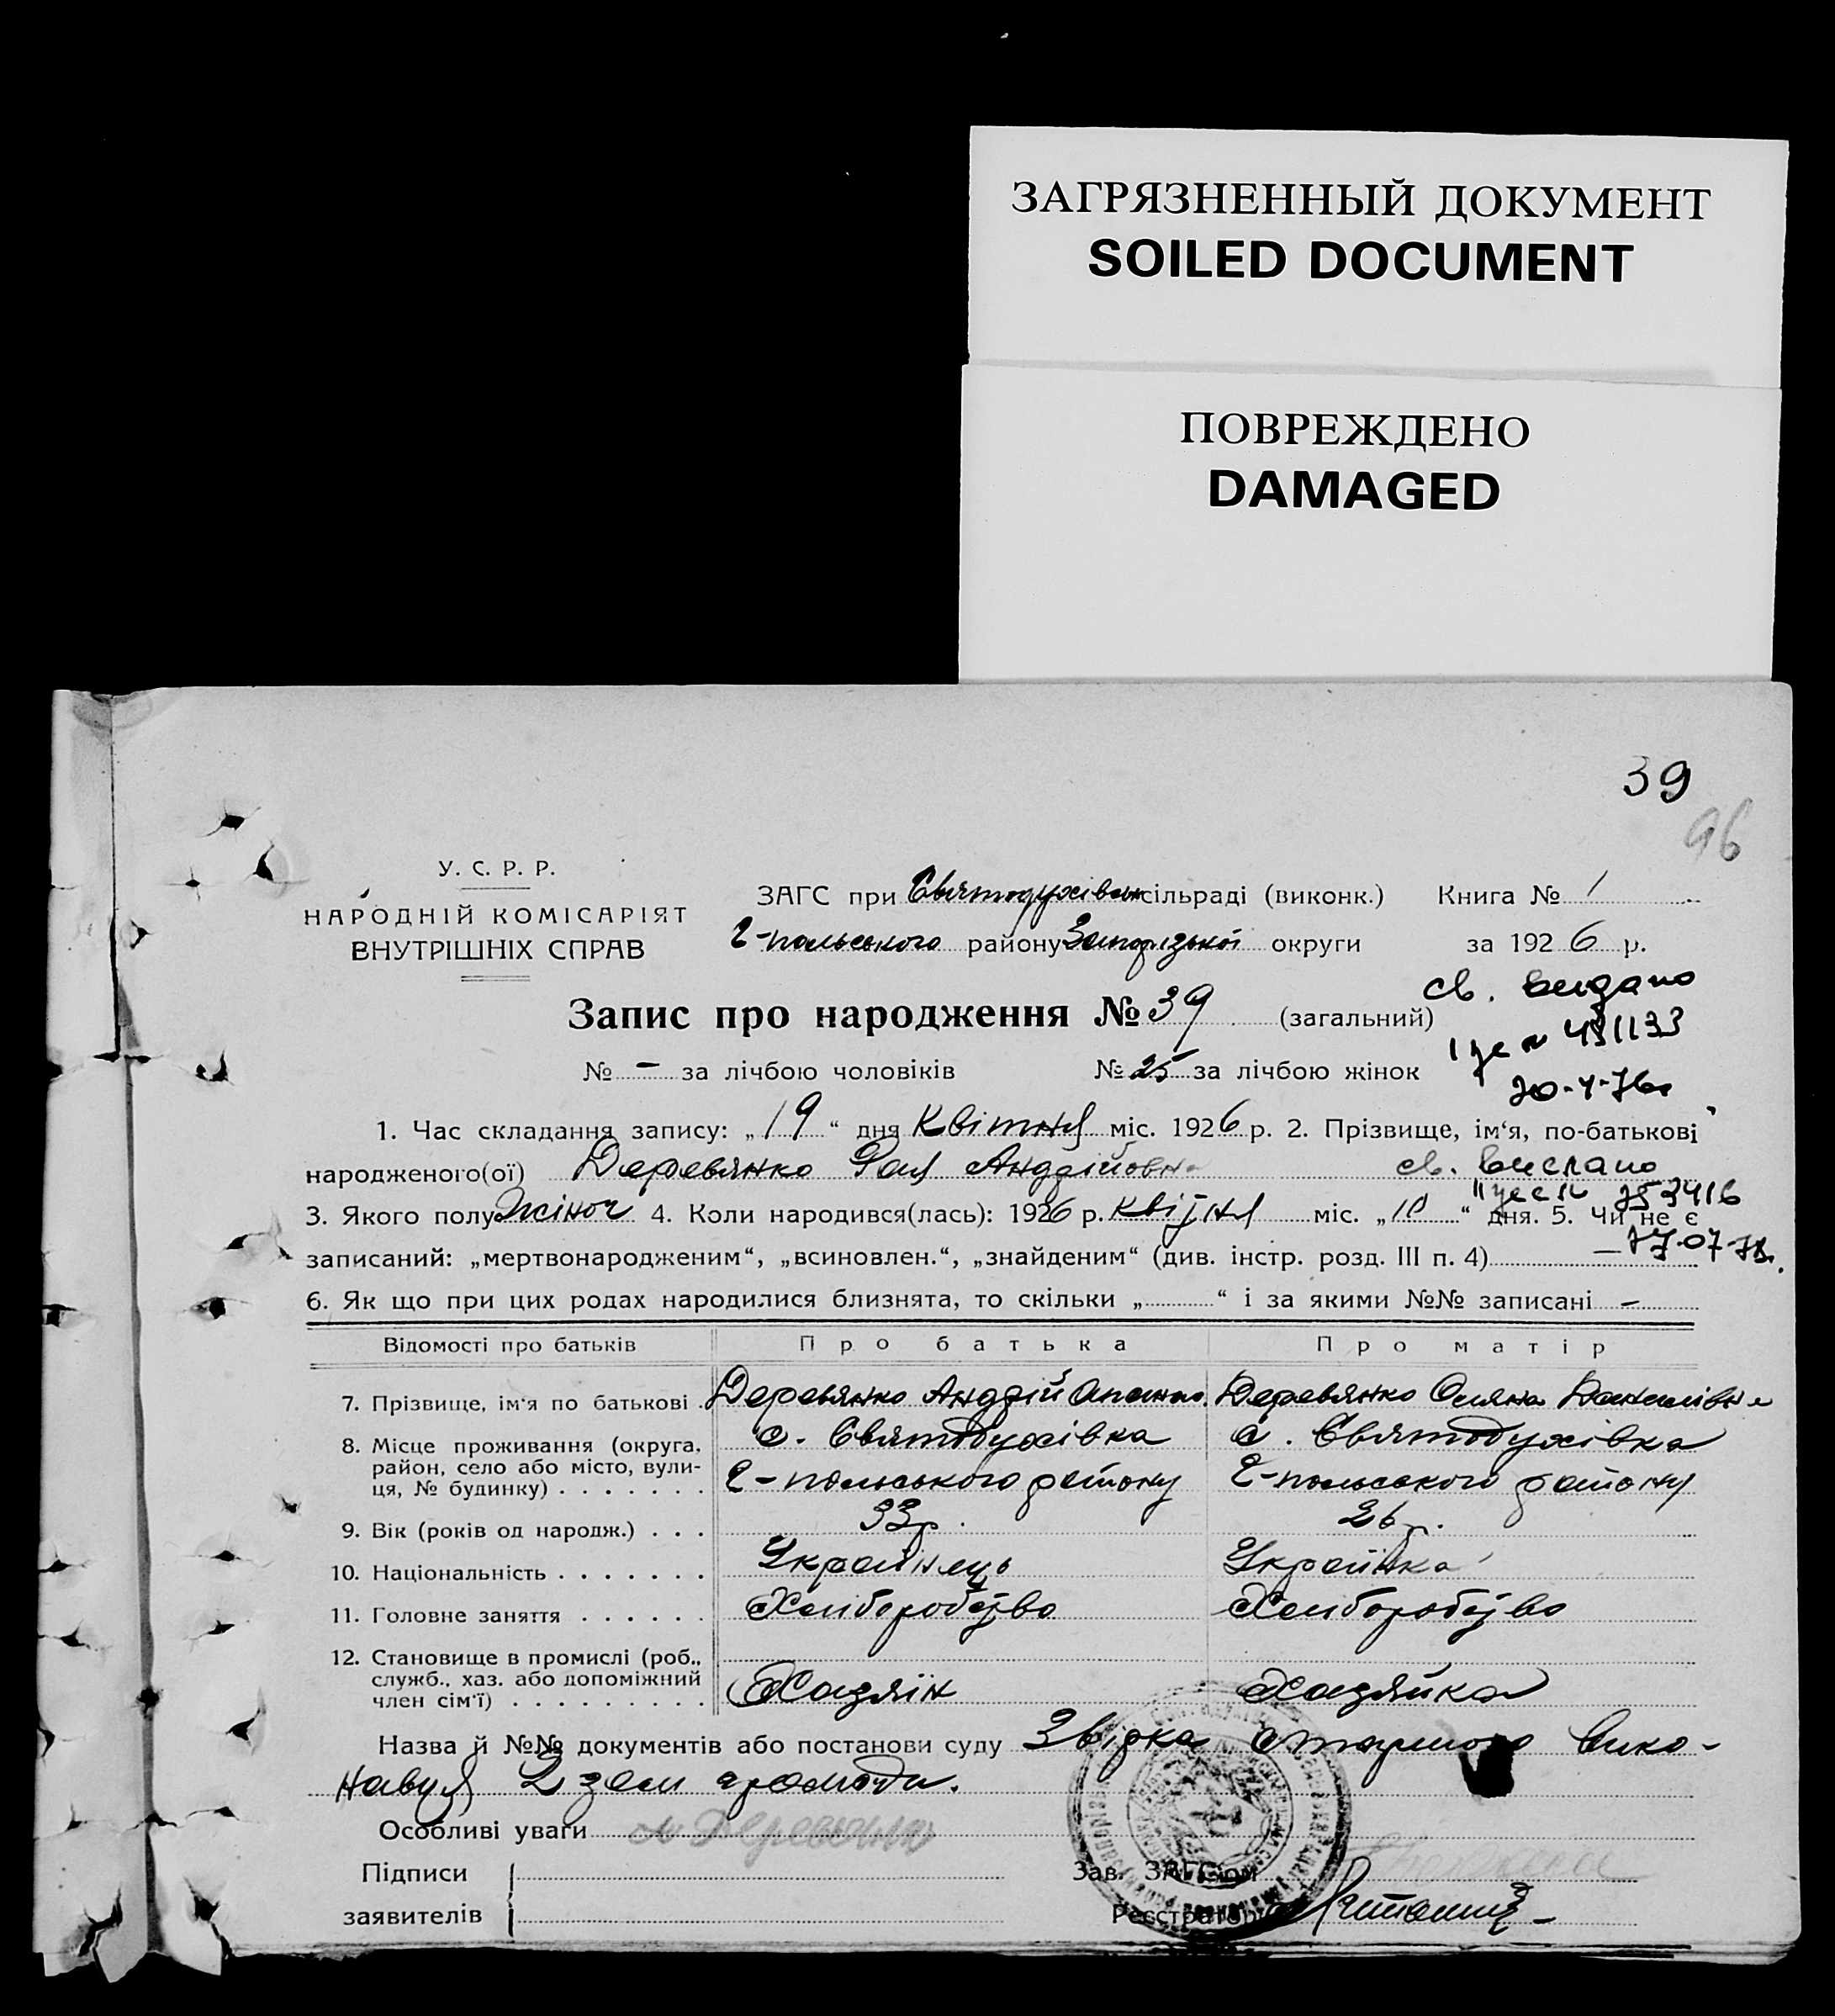 ЗАГРЯЗНЕННЫЙ ДОКУМЕНТ
SOILED DOCUMENT
ПОВРЕЖДЕНО
DAMAGED
39
96
У. С. Р. Р.
НАРОДНІЙ КОМІСАРІЯТ
ВНУТРІШНІХ СПРАВ
ЗАГС при Святодухівськ сільраді (виконк.) Книга № 1
Г-польського району Запорізької округи за 1926 р.
св. видано
Запис про народження № 39 (загальний)
№ – за лічбою чоловіків № 25 за лічбою жінок
1. Час складання запису: „19“ дня Квітня міс. 1926 р. 2. Прізвище, ім‘я, по-батькові
народженого(ої) Деревянко Рая Андрійовна
св. выслано
3. Якого полу жіноч 4. Коли народився(лась): 1926 р. квітня міс. „10“ дня. 5. Чи не є
записаний: „мертвонародженим“, „всиновлен.“, „знайденим“ (див. інстр. розд. III п. 4) –
6. Як що при цих родах народилися близнята, то скільки „ “ і за якими №№ записані –
Відомості про батьків Про батька Про матір
7. Прізвище, ім‘я по батькові Деревянко Андрій Опанас. Деревянко Оляна Данилівна
8. Місце проживання (округа, район, село або місто, вулиця, № будинку) с. Святодухівка с. Святодухівка
Г-польського району Г-польського району
9. Вік (років од народж.) 33 р. 26 р.
10. Національність Українець Українка
11. Головне заняття Хліборобство Хліборобство
12. Становище в промислі (роб., служб., хаз. або допоміжний член сім‘ї) Хазяїн Хазяйка
Назва й №№ документів або постанови суду Звірка старшого вико-
навця 2 зем громади.
Особливі уваги
Підписи
Зав. ЗАГС‘ом
заявителів
Реєстратор